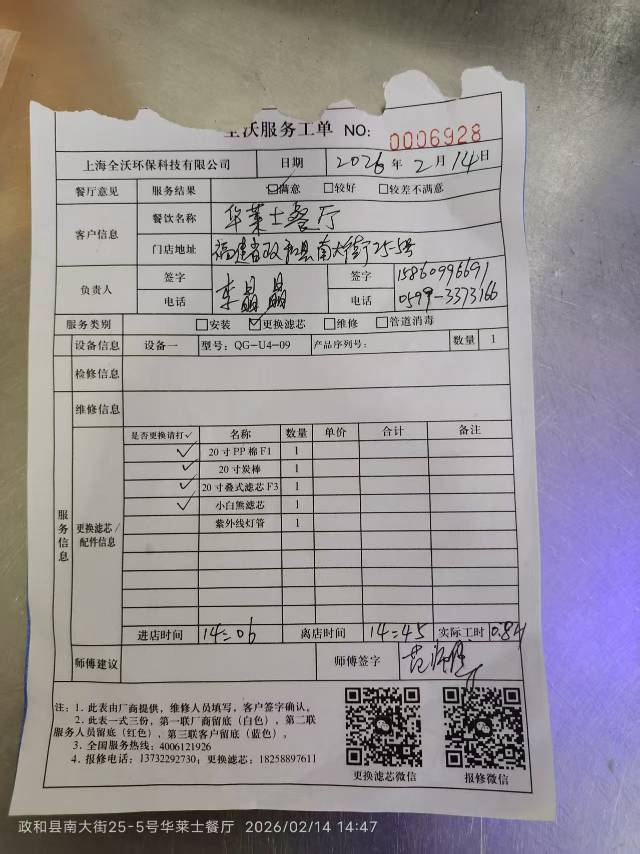 全沃服务工单 NO: 0006928
上海全沃环保科技有限公司 日期 2026年2月14日
餐厅意见 服务结果 ☑满意 □较好 □较差不满意
客户信息 餐饮名称 华莱士餐厅
门店地址 福建省政和县南大街25-5号
负责人 签字 李晶晶 签字 15860996691
电话 电话 0599-3373166
服务类别 □安装 ☑更换滤芯 □维修 □管道消毒
设备信息 设备一 型号: QG-U4-09 产品序列号: 数量 1
检修信息
维修信息
服务信息 更换滤芯/配件信息
是否更换请打✓ 名称 数量 单价 合计 备注
✓ 20寸PP棉F1 1
✓ 20寸炭棒 1
✓ 20寸叠式滤芯F3 1
✓ 小白熊滤芯 1
紫外线灯管 1
进店时间 14:06 离店时间 14:45 实际工时
师傅建议 师傅签字
注: 1. 此表由厂商提供，维修人员填写，客户签字确认。
2. 此表一式三份，第一联厂商留底（白色），第二联
服务人员留底（红色），第三联客户留底（蓝色）。
3. 全国服务热线: 4006121926
4. 报修电话: 13732292730; 更换滤芯: 18258897611
更换滤芯微信 报修微信
政和县南大街25-5号华莱士餐厅 2026/02/14 14:47